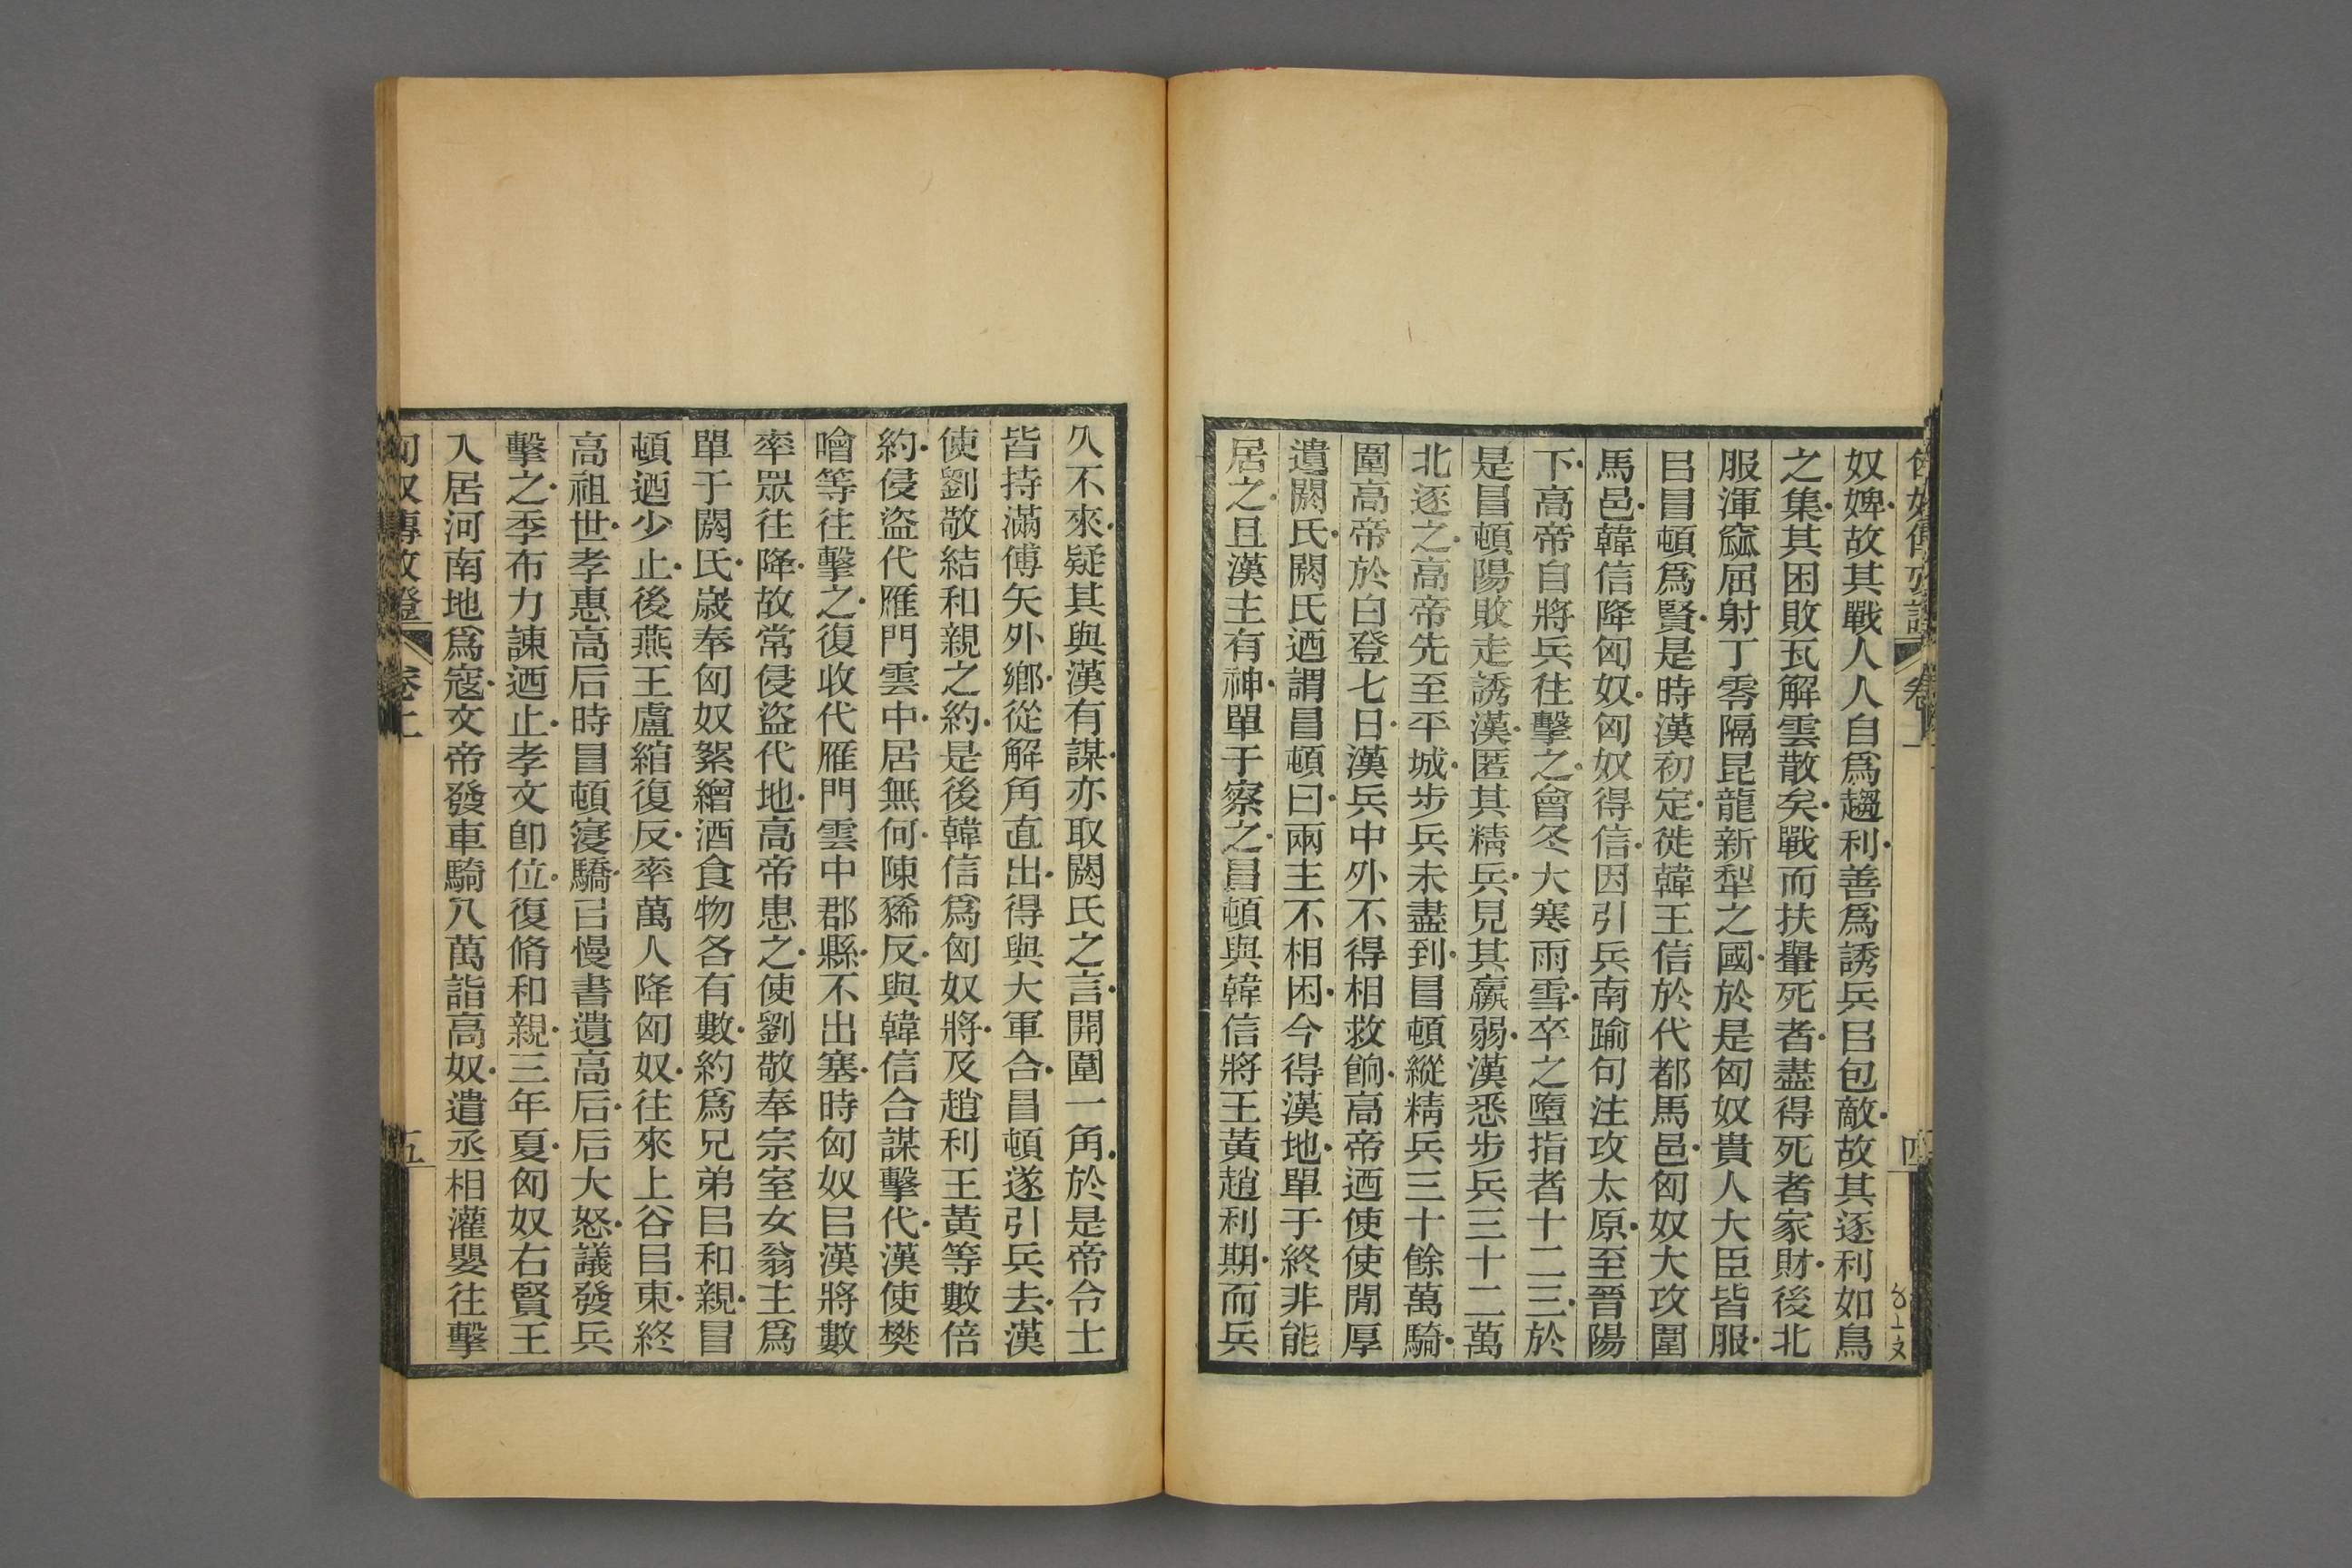 奴婢故其戰人人自爲趨利善爲誘兵㠯包敵故其逐利如鳥
之集其困敗瓦解雲散矣戰而扶轝死者盡得死者家財後北
服渾窳屈射丁零隔昆龍新犁之國於是匈奴貴人大臣皆服
㠯冒頓爲賢是時漢初定徙韓王信於代都馬邑匈奴大攻圍
馬邑韓信降匈奴匈奴得信因引兵南踰句注攻太原至晉陽
下高帝自將兵往擊之會冬大寒雨雪卒之墮指者十二三於
是冒頓陽敗走誘漢匿其精兵見其羸弱漢悉步兵三十二萬
北逐之高帝先至平城步兵未盡到冒頓縱精兵三十餘萬騎
圍高帝於白登七日漢兵中外不得相救餉高帝迺使使閒厚
遺閼氏閼氏迺謂冒頓曰兩主不相困今得漢地單于終非能
居之且漢主有神單于察之冒頓與韓信將王黃趙利期而兵
久不來疑其與漢有謀亦取閼氏之言開圍一角於是帝令士
皆持滿傅矢外鄉從解角直出得與大軍合冒頓遂引兵去漢
使劉敬結和親之約是後韓信爲匈奴將及趙利王黃等數倍
約侵盜代雁門雲中居無何陳豨反與韓信合謀擊代漢使樊
噲等往擊之復收代雁門雲中郡縣不出塞時匈奴㠯漢將數
率眾往降故常侵盜代地高帝患之使劉敬奉宗室女翁主爲
單于閼氏歲奉匈奴絮繒酒食物各有數約爲兄弟㠯和親冒
頓迺少止後燕王盧綰復反率萬人降匈奴往來上谷㠯東終
高祖世孝惠高后時冒頓寖驕㠯慢書遺高后后大怒議發兵
擊之季布力諫迺止孝文卽位復脩和親三年夏匈奴右賢王
入居河南地爲寇文帝發車騎八萬詣高奴遣丞相灌嬰往擊
匈奴傳攷證 卷上 五